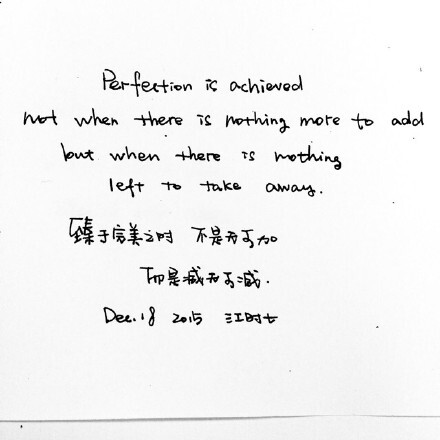 Perfection is achieved
not when there is nothing more to add
but when there is nothing
left to take away.
臻于完美之时 不是无可加
而是减无可减.
Dec.18 2015